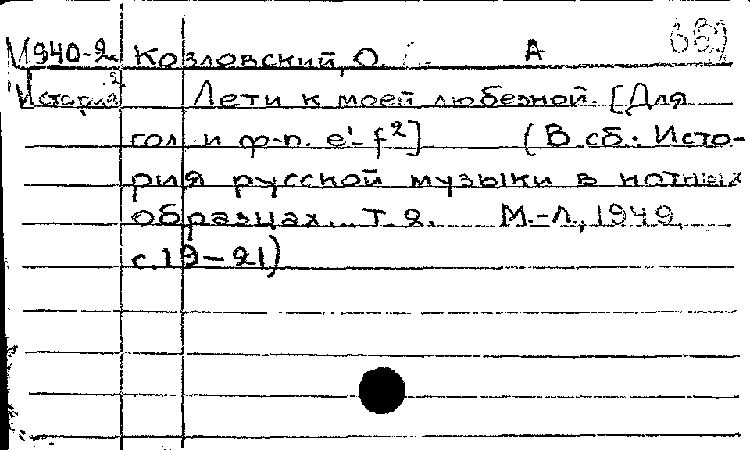 М940-2 Козловский, О. А 689
История Лети к моей любезной. [Для
гол. и ф-п. e'-f²] (В сб.: Исто-
рия русской музыки в нотных
образцах... Т. 2. М.-Л., 1949,
с. 19-21)